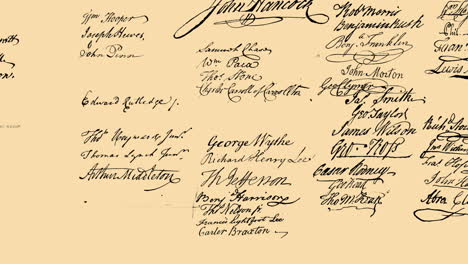 Wm Hooper
Joseph Hewes,
John Penn
Edward Rutledge /.
Thos Heyward Junr.
Thomas Lynch Junr.
Arthur Middleton
John Hancock
Samuel Chase
Wm Paca
Thos. Stone
Charles Carroll of Carrollton
George Wythe
Richard Henry Lee
Th Jefferson
Benj Harrison
Thos Nelson jr.
Francis Lightfoot Lee
Carter Braxton
Robt Morris
Benjamin Rush
Benj. Franklin
John Morton
Geo Clymer
Jas. Smith
Geo. Taylor
James Wilson
Geo. Ross
Caesar Rodney
Geo Read
Tho M:Kean
Lewis
Richd. Sto
Abra Cl